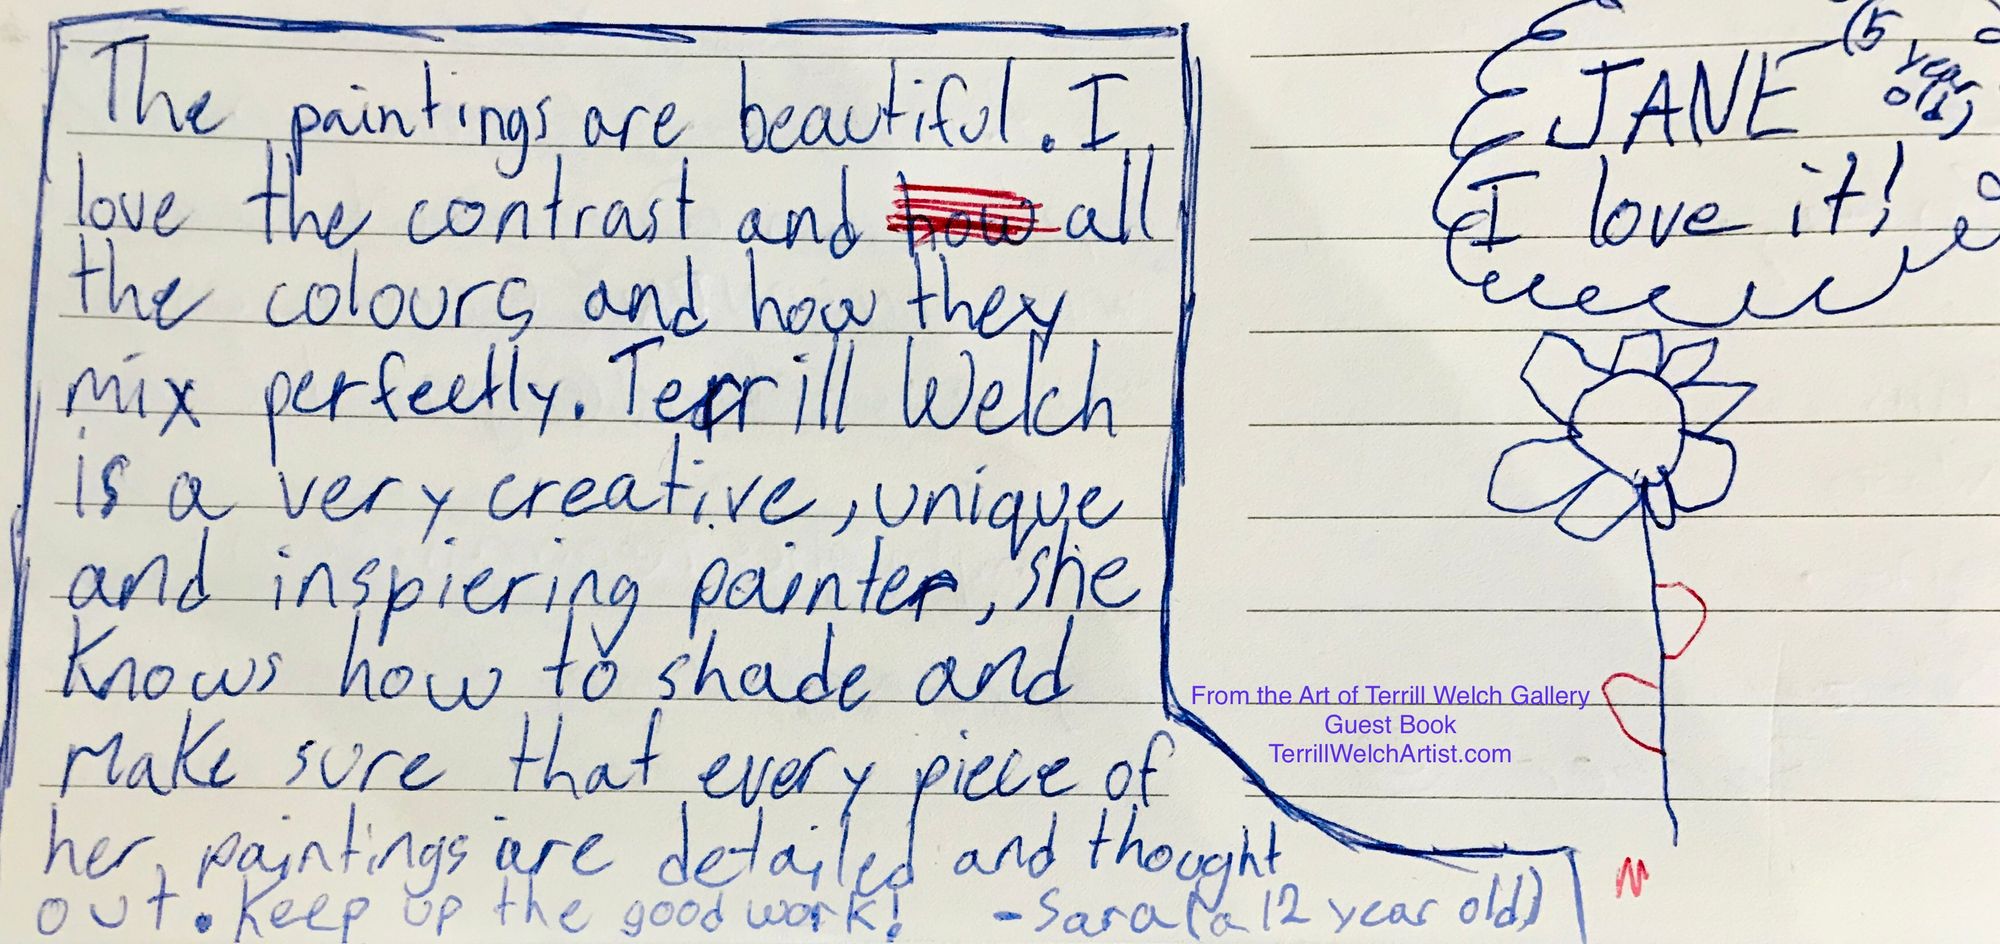 The paintings are beautiful. I
love the contrast and how all
the colours and how they
mix perfectly. Terrill Welch
is a very creative, unique
and inspiering painter, she
knows how to shade and
make sure that every piece of
her paintings are detailed and thought
out. Keep up the good work! - Sara (a 12 year old)
JANE (5
year
old)
I love it!
From the Art of Terrill Welch Gallery
Guest Book
TerrillWelchArtist.com